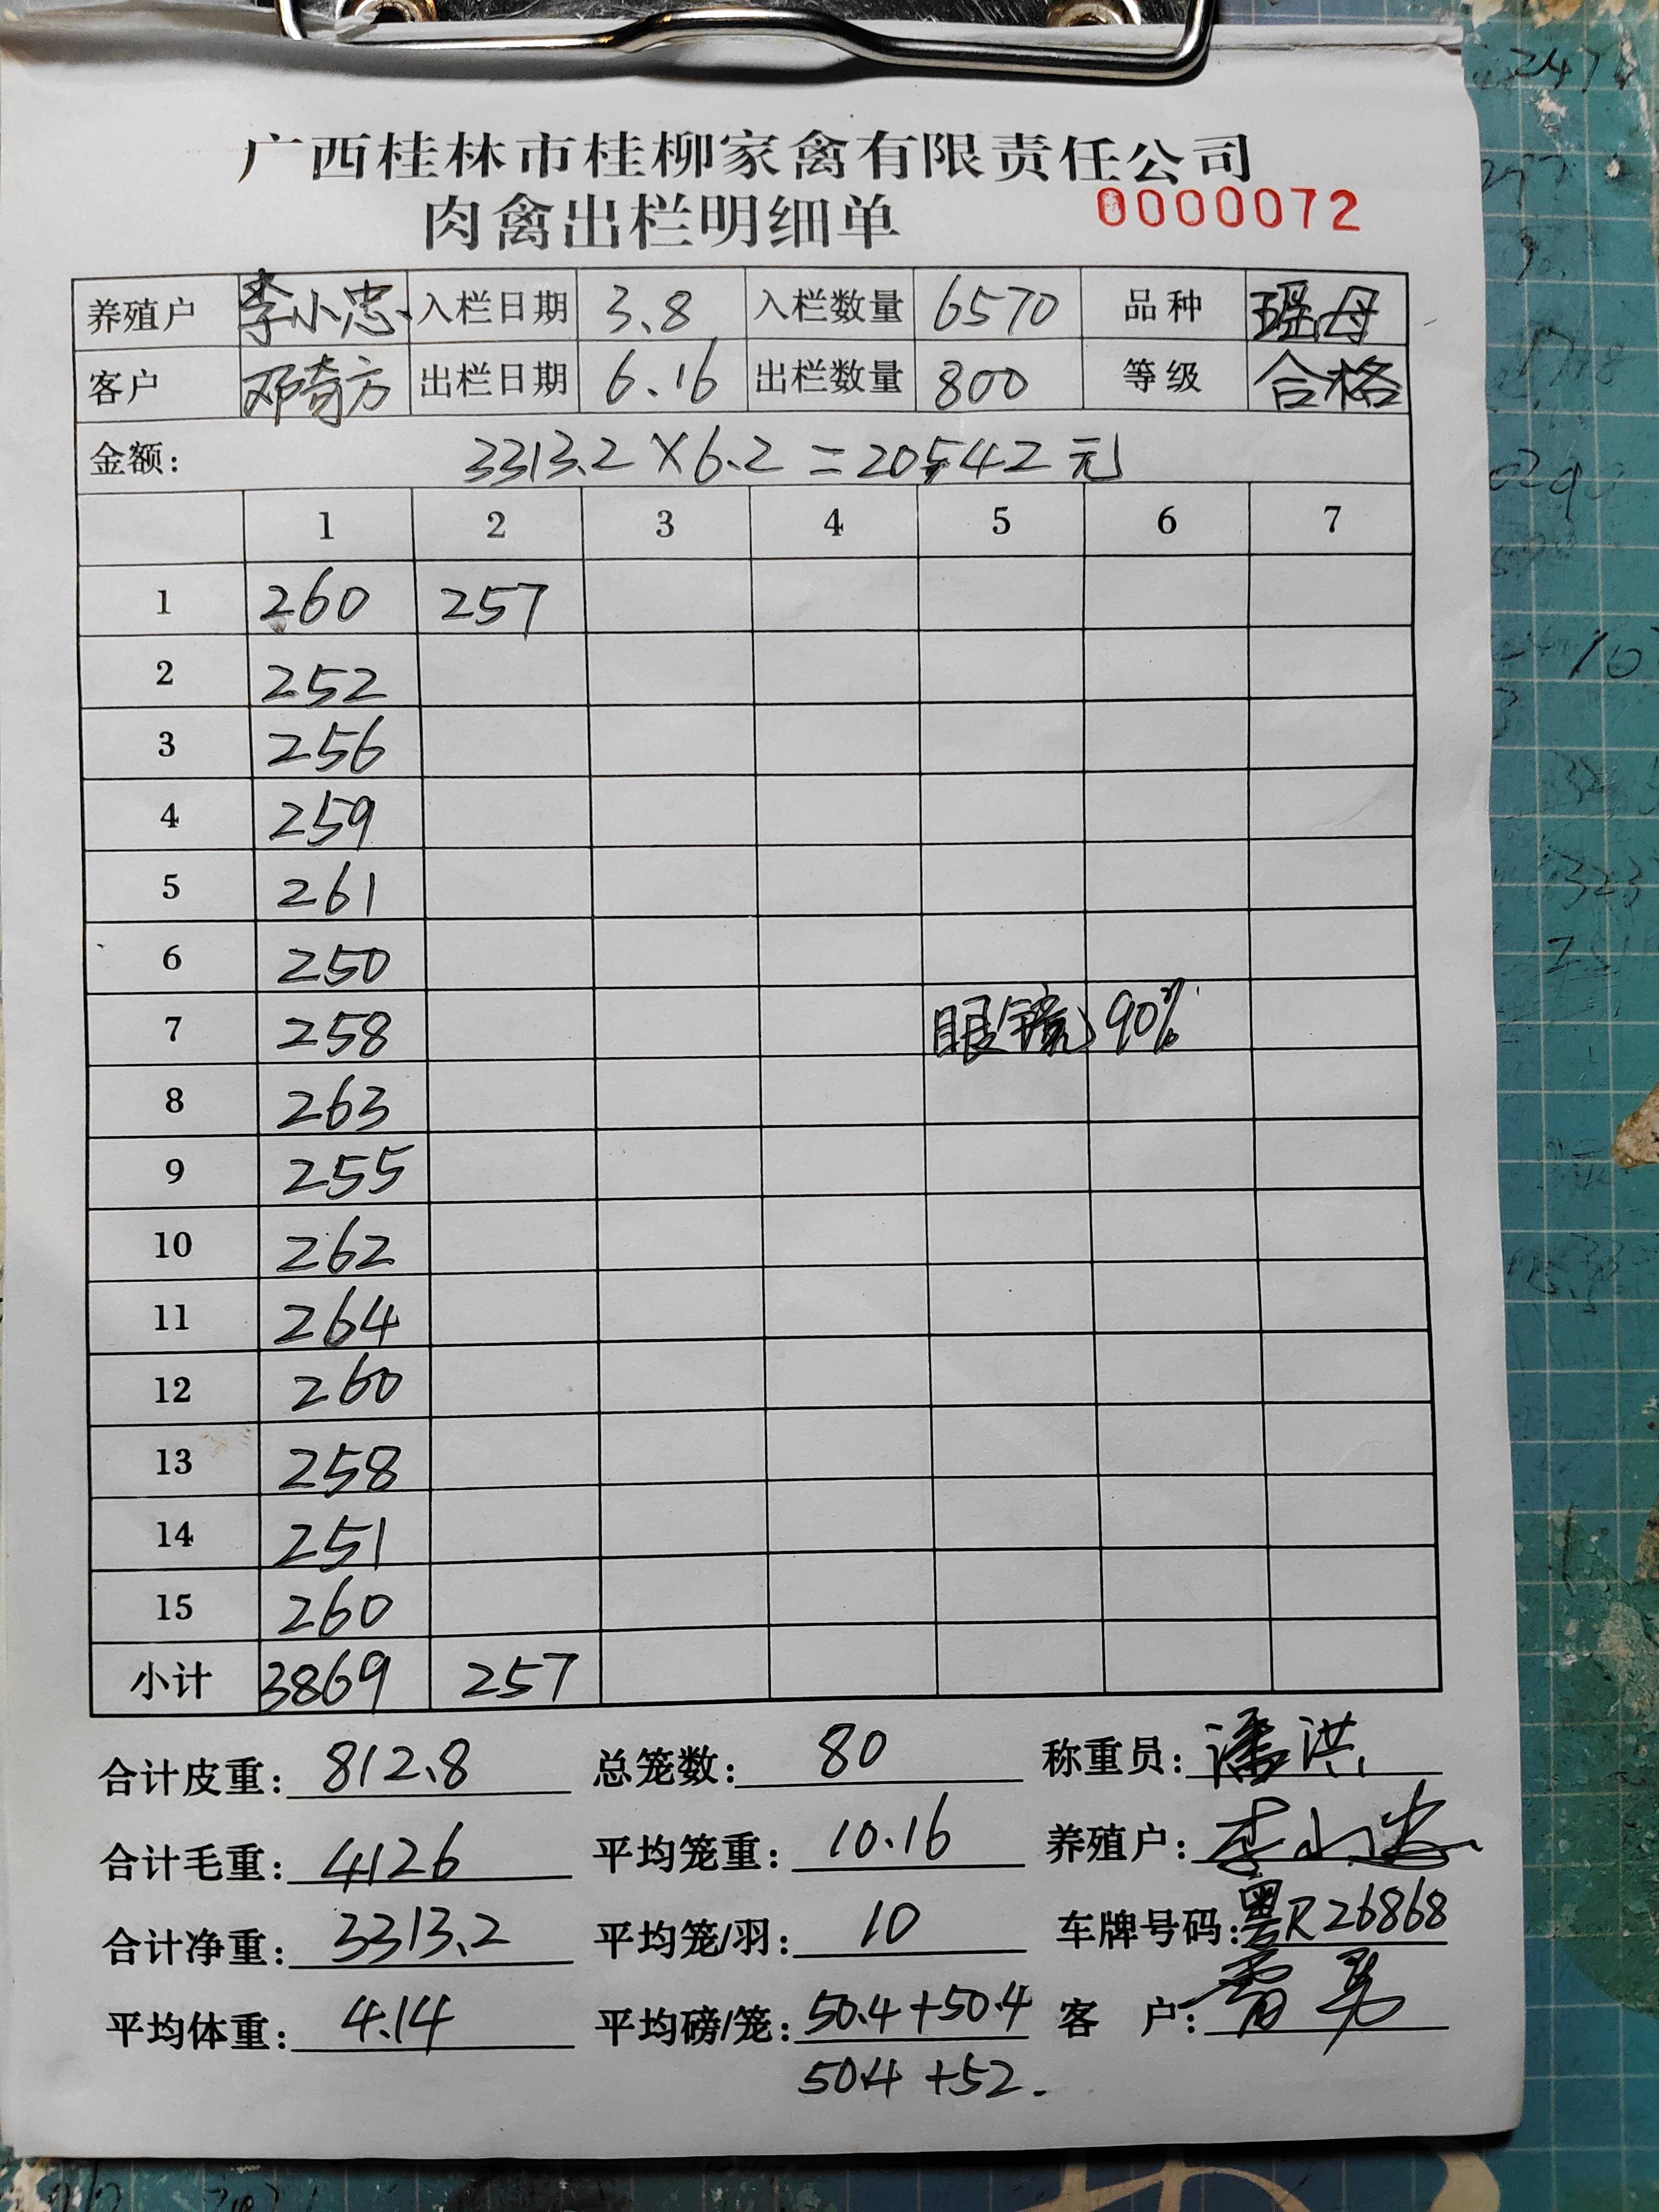 广西桂林市桂柳家禽有限责任公司
肉禽出栏明细单 0000072
养殖户 李小忠 入栏日期 3.8 入栏数量 6570 品种 瑶母
客户 邓奇方 出栏日期 6.16 出栏数量 800 等级 合格
金额: 3313.2×6.2=20542元
1 2 3 4 5 6 7
1 260 257
2 252
3 256
4 259
5 261
6 250
7 258 眼镜 90%
8 263
9 255
10 262
11 264
12 260
13 258
14 251
15 260
小计 3869 257
合计皮重: 812.8 总笼数: 80 称重员: 潘洪
合计毛重: 4126 平均笼重: 10.16 养殖户: 李小忠
合计净重: 3313.2 平均笼/羽: 10 车牌号码: 粤R26868
平均体重: 4.14 平均磅/笼: 50.4+50.4 客 户:
50.4+52.